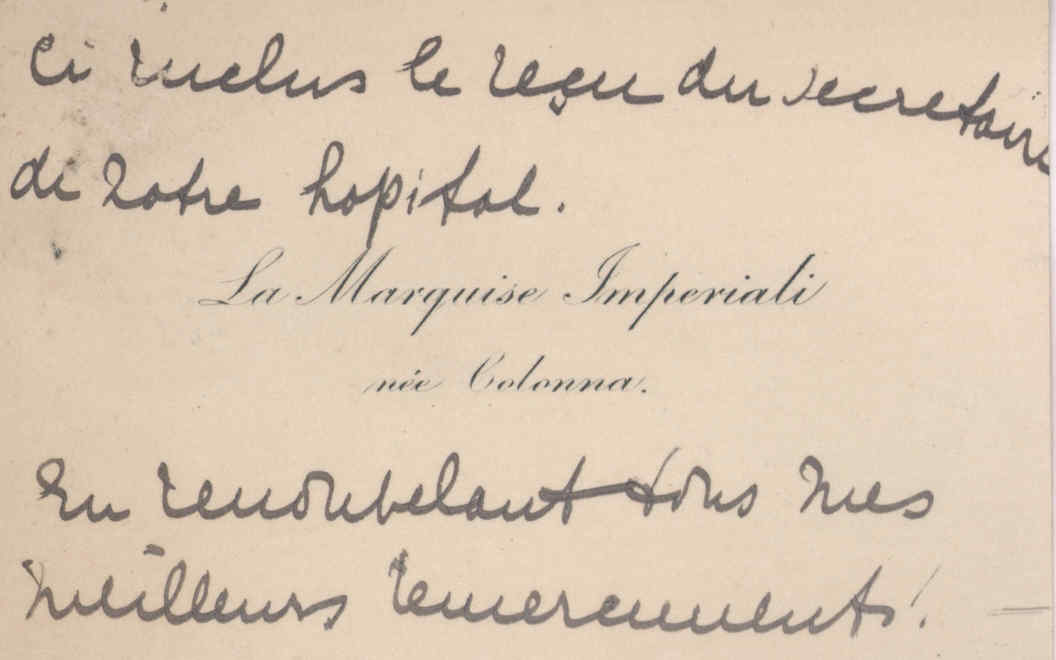 Ci inclus le reçu du secretaire
de notre hopital.
La Marquise Imperiali
née Colonna.
En renouvelant tous mes
meilleurs remerciements!